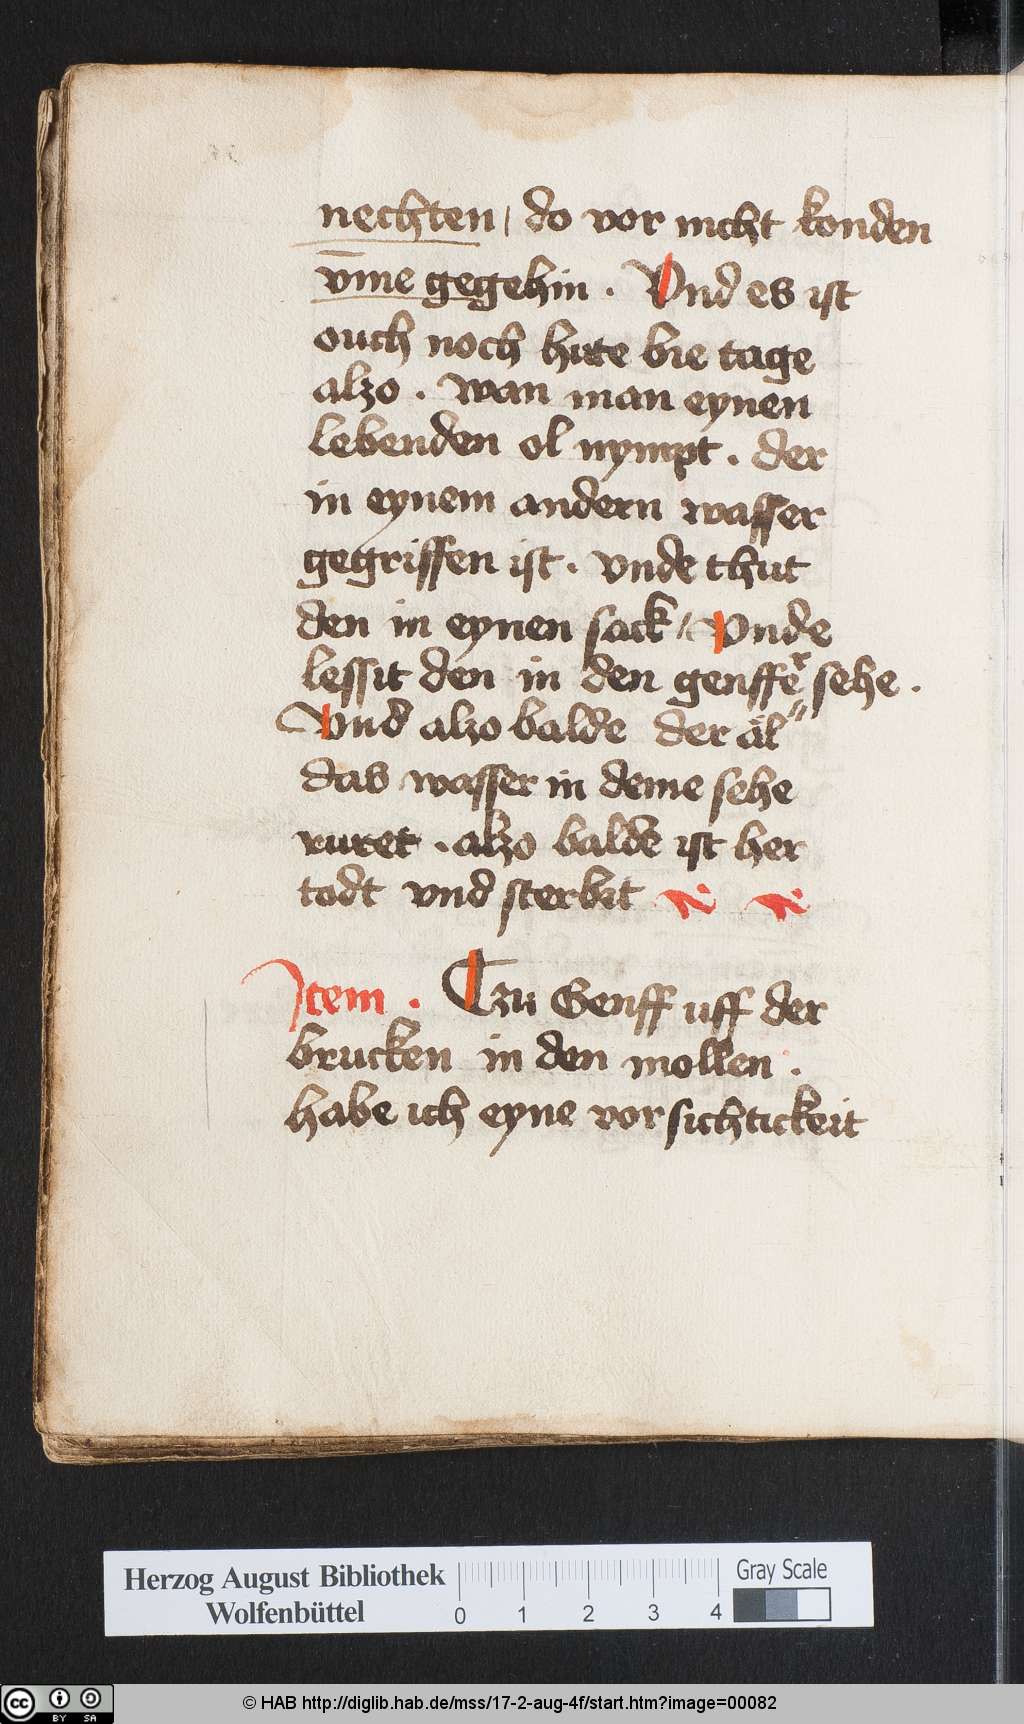 nechten / do vor nicht konden
v̄me gegehin . Vnd es ist
ouch noch hute bie tage
alzo . wan man eynen
lebenden ol nympt . der
in eynem andern wasser
gegriffen ist . vnde thut
den in eynen sack / Vnde
lessit den in den genffer sehe .
Vnd alzo balde der äl
das wasser in deme sehe
ruret . alzo balde ist her
todt vnd sterbit
Item . Czu Genff uff der
brucken in den mollen :
habe ich eyne vorsichtickeit
Herzog August Bibliothek
Wolfenbüttel
0 1 2 3 4
Gray Scale
cc BY SA
© HAB http://diglib.hab.de/mss/17-2-aug-4f/start.htm?image=00082